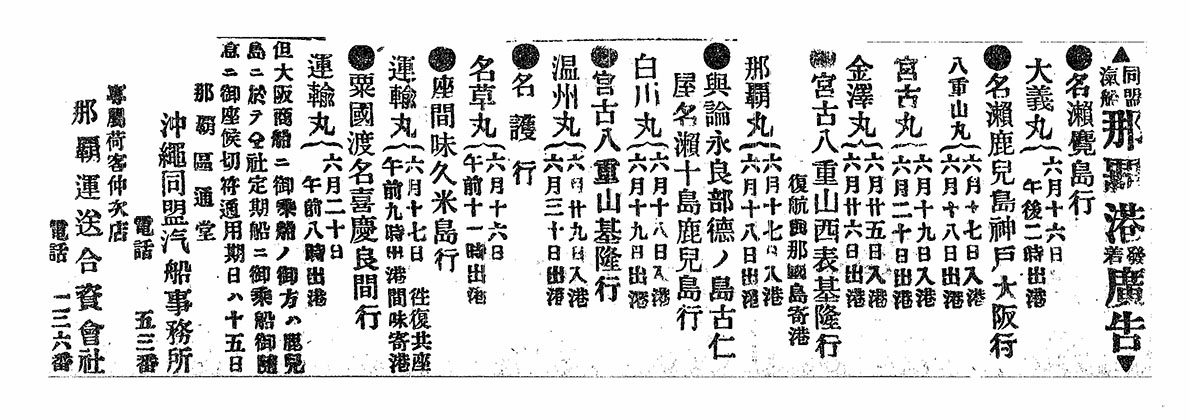 ▲同盟汽船那覇港發着廣告▼
●名瀨鹿島行
大義丸 六月十六日
午後二時出港
●名瀨鹿兒島神戸大阪行
八重山丸 六月十七日入港
六月十八日出港
宮古丸 六月十九日入港
六月二十日出港
金澤丸 六月廿五日入港
六月廿六日出港
●宮古八重山西表基隆行
復航與那國島寄港
那覇丸 六月十七日入港
六月十八日出港
●與論永良部德ノ島古仁
屋名瀨十島鹿兒島行
白川丸 六月十八日入港
六月十九日出港
●宮古八重山基隆行
温州丸 六月廿九日入港
六月三十日出港
●名護行
名草丸 六月十六日
午前十一時出港
●座間味久米島行
運輸丸 六月十七日
午前九時出港
徃復共座
間味寄港
●粟國渡名喜慶良間行
運輸丸 六月二十日
午前八時出港
但大阪商船ニ御乘船ノ御方ハ鹿兒
島ニ於テ仝社定期船ニ御乘船御隨
意ニ御座候切符通用期日ハ十五日
那覇區通堂
沖繩同盟汽船事務所
電話 五三番
專屬荷客仲次店
那覇運送合資會社
電話 一二六番